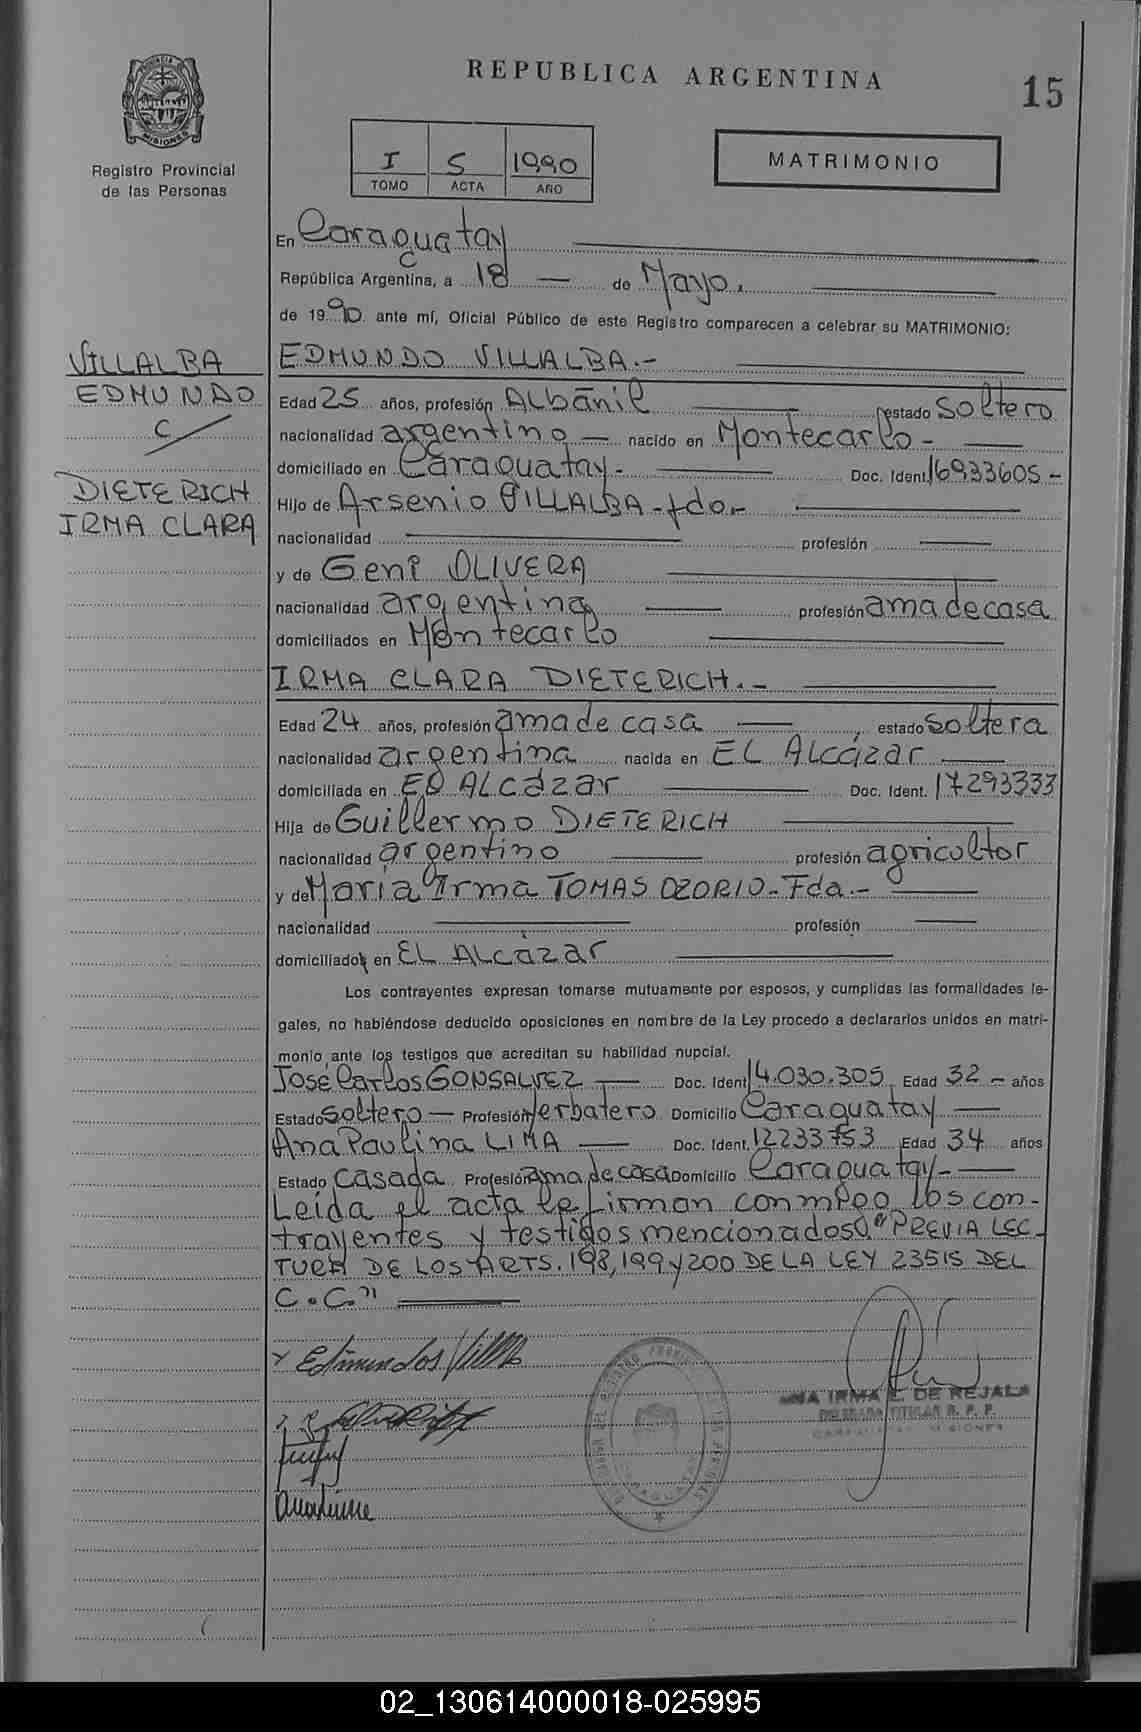 REPUBLICA ARGENTINA
15
MISIONES
Registro Provincial
de las Personas
I S 1990
TOMO ACTA AÑO
MATRIMONIO
En Caraguatay
República Argentina, a 18 de Mayo.
de 1990 ante mí, Oficial Público de este Registro comparecen a celebrar su MATRIMONIO:
VILLALBA
EDMUNDO
C/
DIETERICH
IRMA CLARA
EDMUNDO VILLALBA.-
Edad 25 años, profesión Albañil estado soltero
nacionalidad argentino - nacido en Montecarlo -
domiciliado en Caraguatay - Doc. Ident. 16933605 -
Hijo de Arsenio VILLALBA - fdo.-
nacionalidad profesión
y de Geni OLIVERA
nacionalidad argentina profesión ama de casa
domiciliados en Montecarlo
IRMA CLARA DIETERICH.-
Edad 24 años, profesión ama de casa estado soltera
nacionalidad argentina nacida en EL Alcázar
domiciliada en EL ALCázar Doc. Ident. 17293333
Hija de Guillermo DIETERICH
nacionalidad argentino profesión agricultor
y de María Irma TOMAS OZORIO - Fda.-
nacionalidad profesión
domiciliados en EL ALCázar
Los contrayentes expresan tomarse mutuamente por esposos, y cumplidas las formalidades le-
gales, no habiéndose deducido oposiciones en nombre de la Ley procedo a declararlos unidos en matri-
monio ante los testigos que acreditan su habilidad nupcial.
José Carlos GONSALVEZ Doc. Ident 14.030.305 Edad 32 - años
Estado soltero - Profesión Yerbatero Domicilio Caraguatay
Ana Paulina LIMA Doc. Ident. 12233753 Edad 34 años
Estado Casada Profesión ama de casa Domicilio Caraguatay -
Leída el acta la firman conmigo los con-
trayentes y testigos mencionados. "PREVIA LEC
TURA DE LOS ARTS. 198, 199 y 200 DE LA LEY 23515 DEL
C.C."
ANA IRMA E. DE REJALA
DELEGADA TITULAR R. P. P.
CARAGUATAY MISIONES
02_130614000018-025995